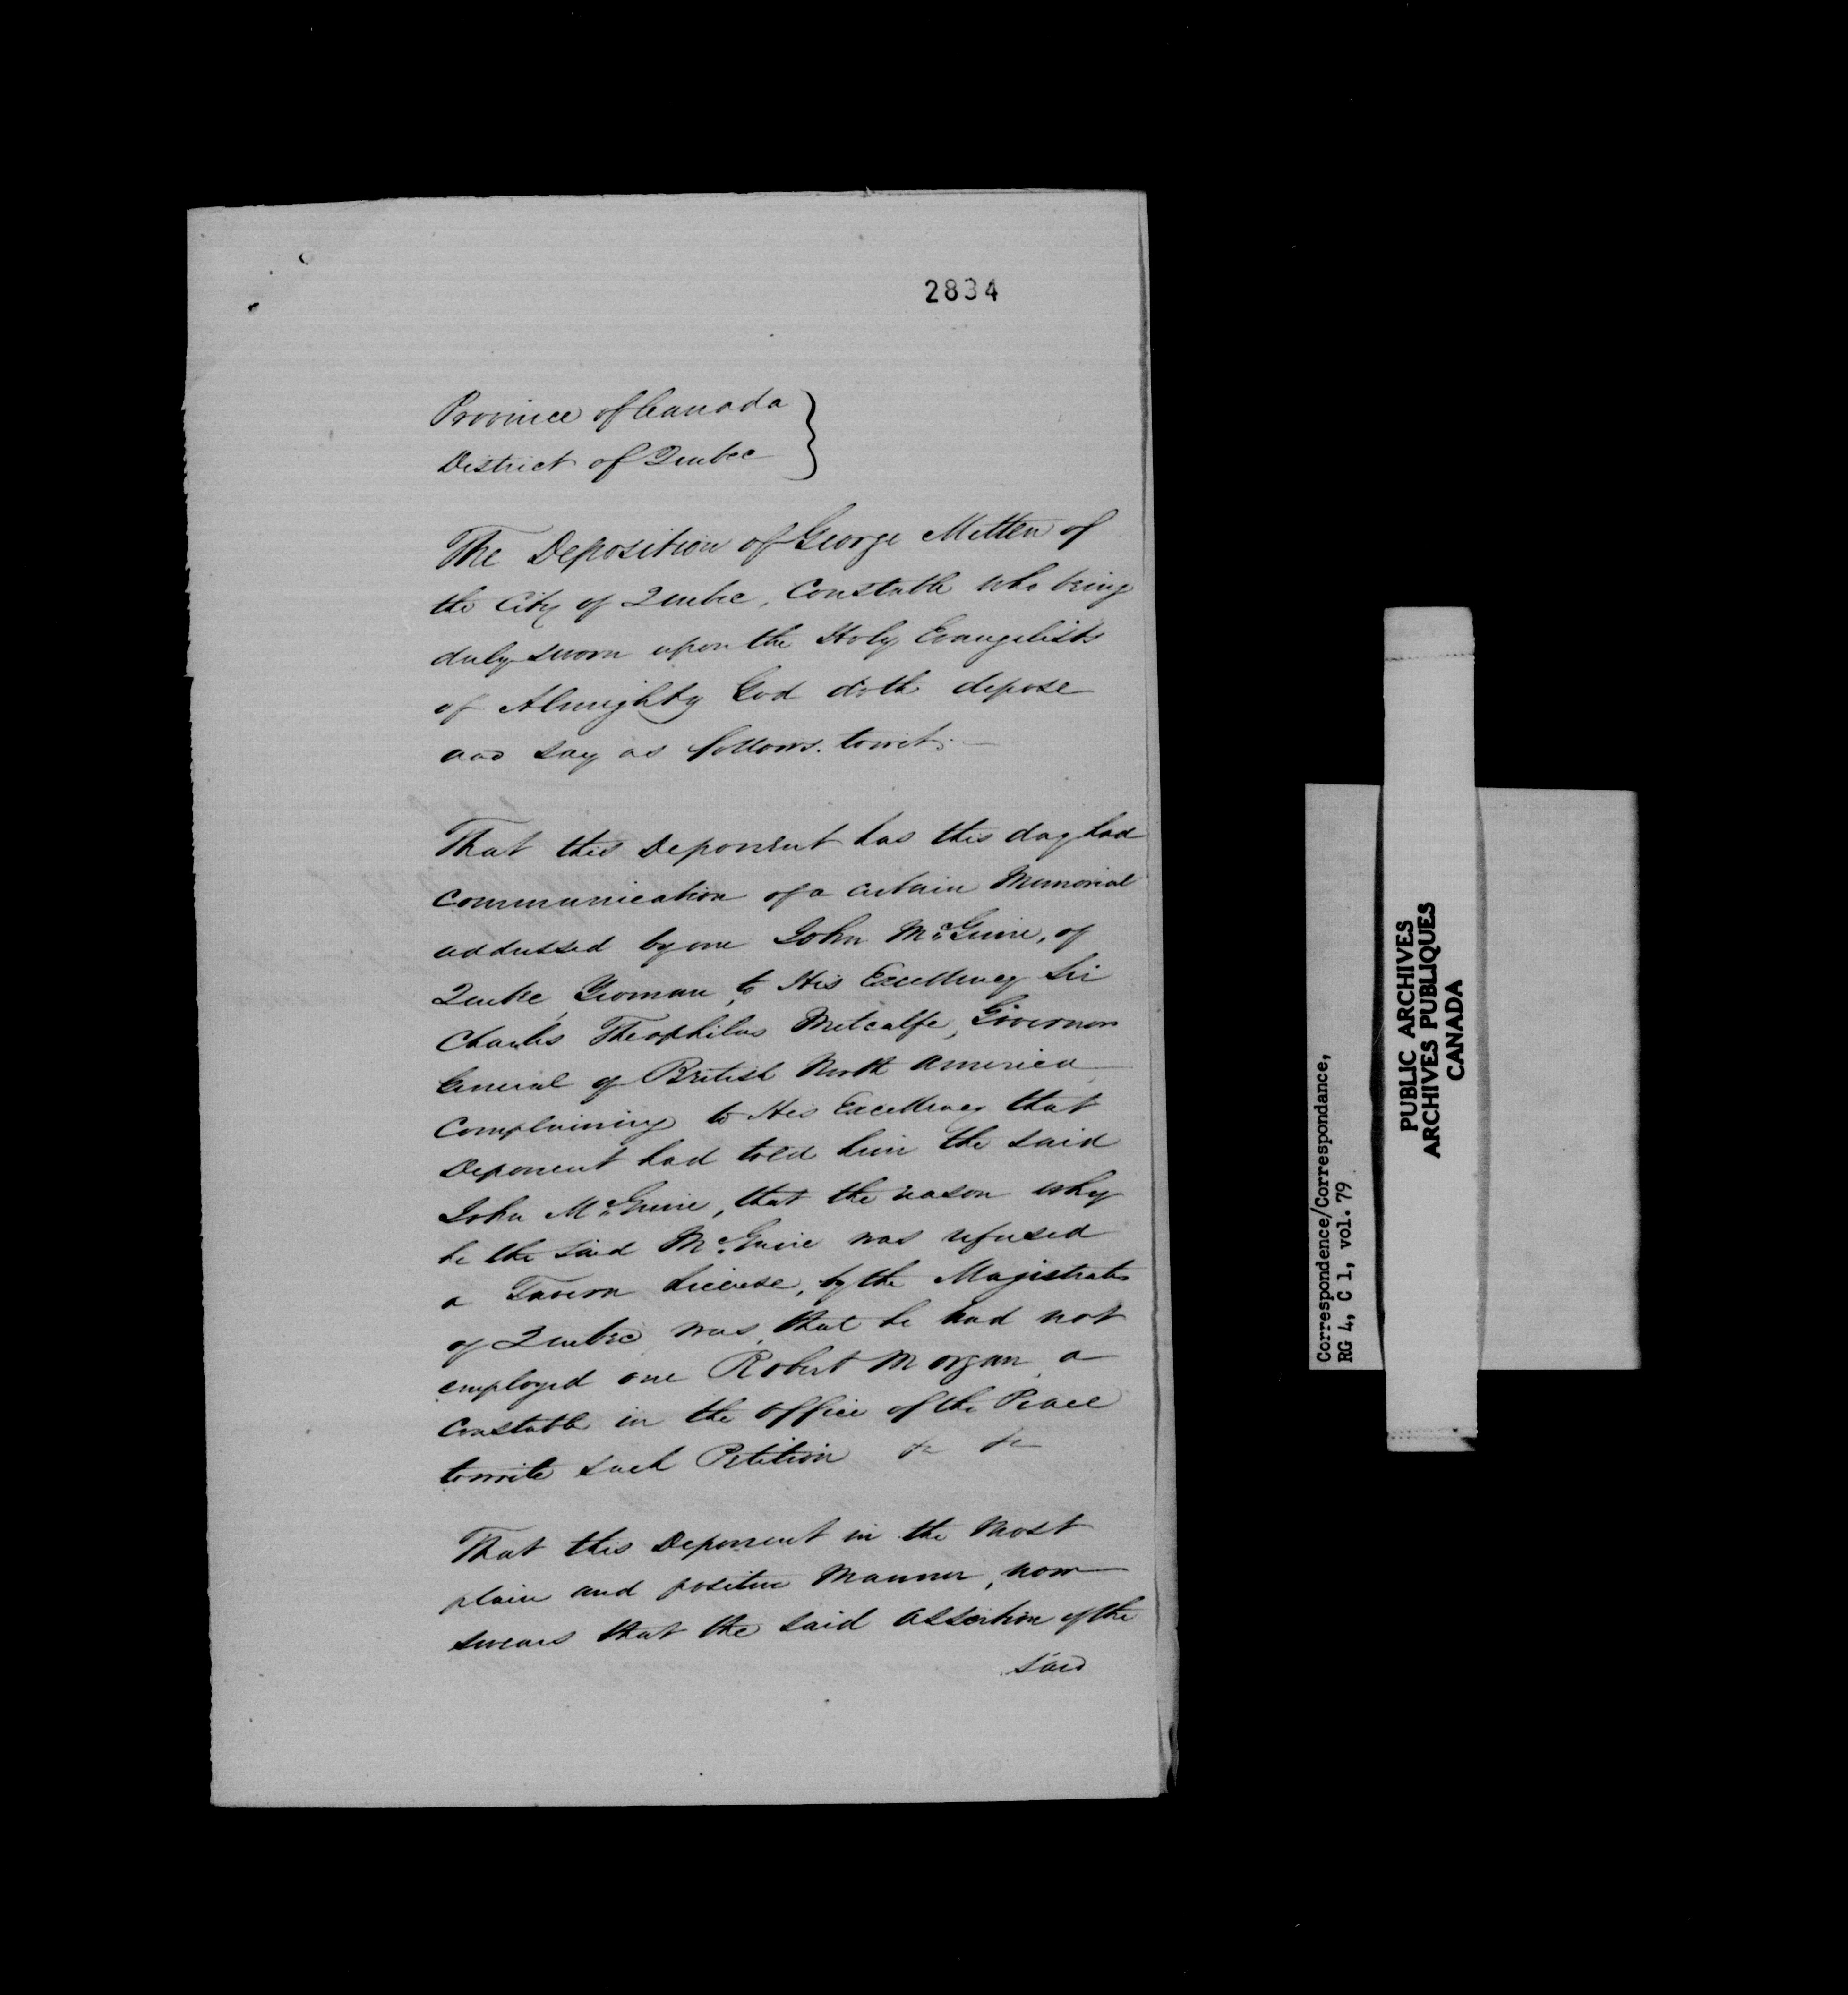 2834
Province of Canada
District of Quebec
The Deposition of George Mitten of
the City of Quebec, Constable who being
duly sworn upon the Holy Evangelists
of Almighty God doth depose
and say as follows. towit:—
That this Deponent has this day had
communication of a certain Memorial
addressed by one John McGuire, of
Quebec, Yeoman, to His Excellency Sir
Charles Theophilus Metcalfe, Governor
General of British North America
Complaining to His Excellency that
Deponent had told him the said
John McGuire, that the reason why
he the said McGuire was refused
a Tavern License, by the Magistrates
of Quebec was, that he had not
employed one Robert Morgan, a
Constable in the Office of the Peace
to write such Petition &c &c
That this Deponent in the Most
plain and positive Manner, now
swears that the said assertion of the
said
Correspondence/Correspondance,
RG 4, C 1, vol. 79
PUBLIC ARCHIVES
ARCHIVES PUBLIQUES
CANADA